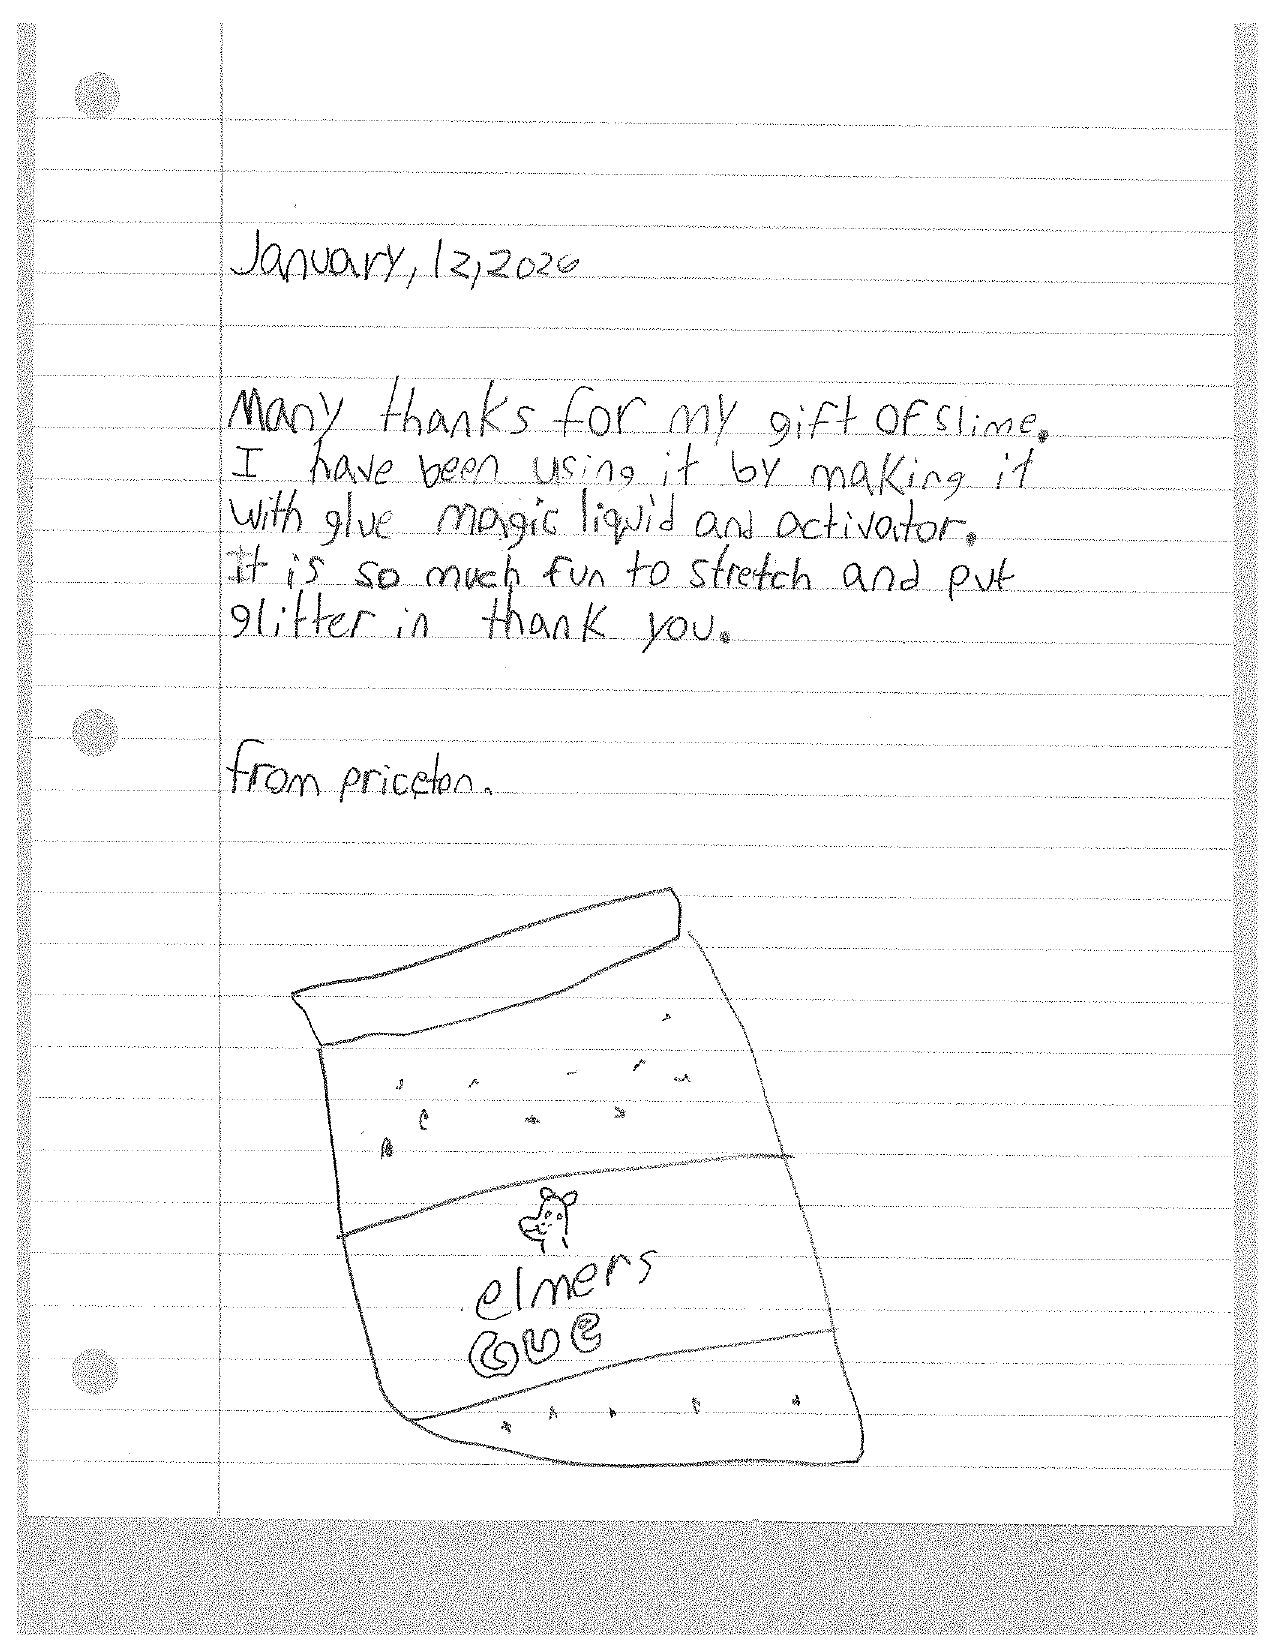 January, 12, 2026
Many thanks for my gift of slime.
I have been using it by making it
with glue magic liquid and activator.
It is so much fun to stretch and put
glitter in thank you.
from priceton.
elmers
GUE